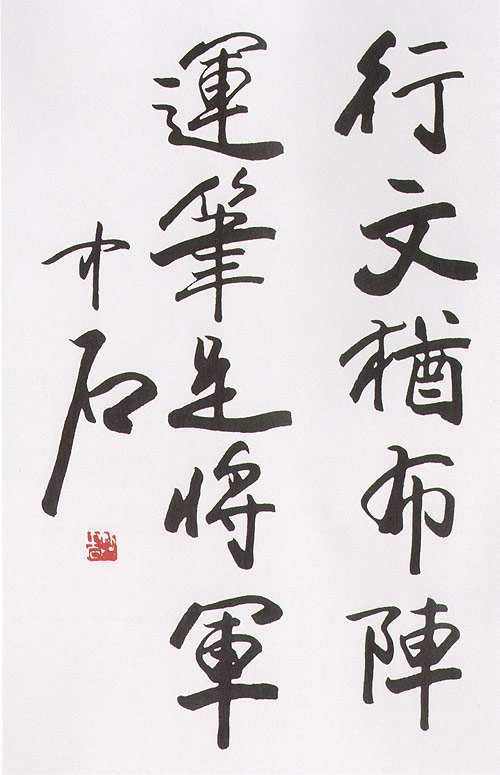 行文猶布陣
運筆是將軍
中石